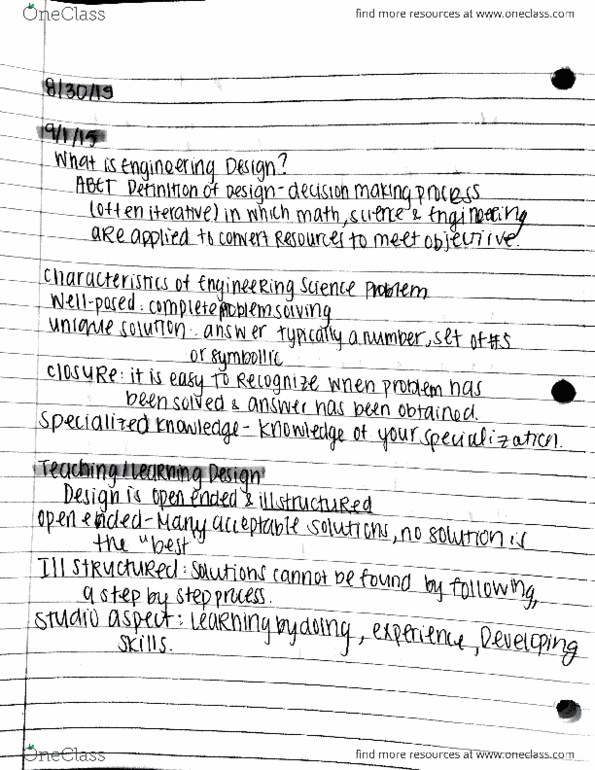 OneClass
find more resources at www.oneclass.com
8/30/19
9/1/15
What is Engineering Design?
ABET Definition of Design - decision making process
(often iterative) in which math, science & Engineering
are applied to convert resources to meet objective.
Characteristics of Engineering Science Problem
Well-posed: complete problem solving
unique solution: answer typically a number, set of #s
or symbollic
closure: it is easy to recognize when problem has
been solved & answer has been obtained.
Specialized knowledge - knowledge of your specialization.
Teaching/Learning Design
Design is open ended & illstructured
open ended - Many acceptable solutions, no solution is
the "best"
Ill structured: solutions cannot be found by following,
a step by step process.
studio aspect: learning by doing, experience, Developing
skills.
OneClass
find more resources at www.oneclass.com